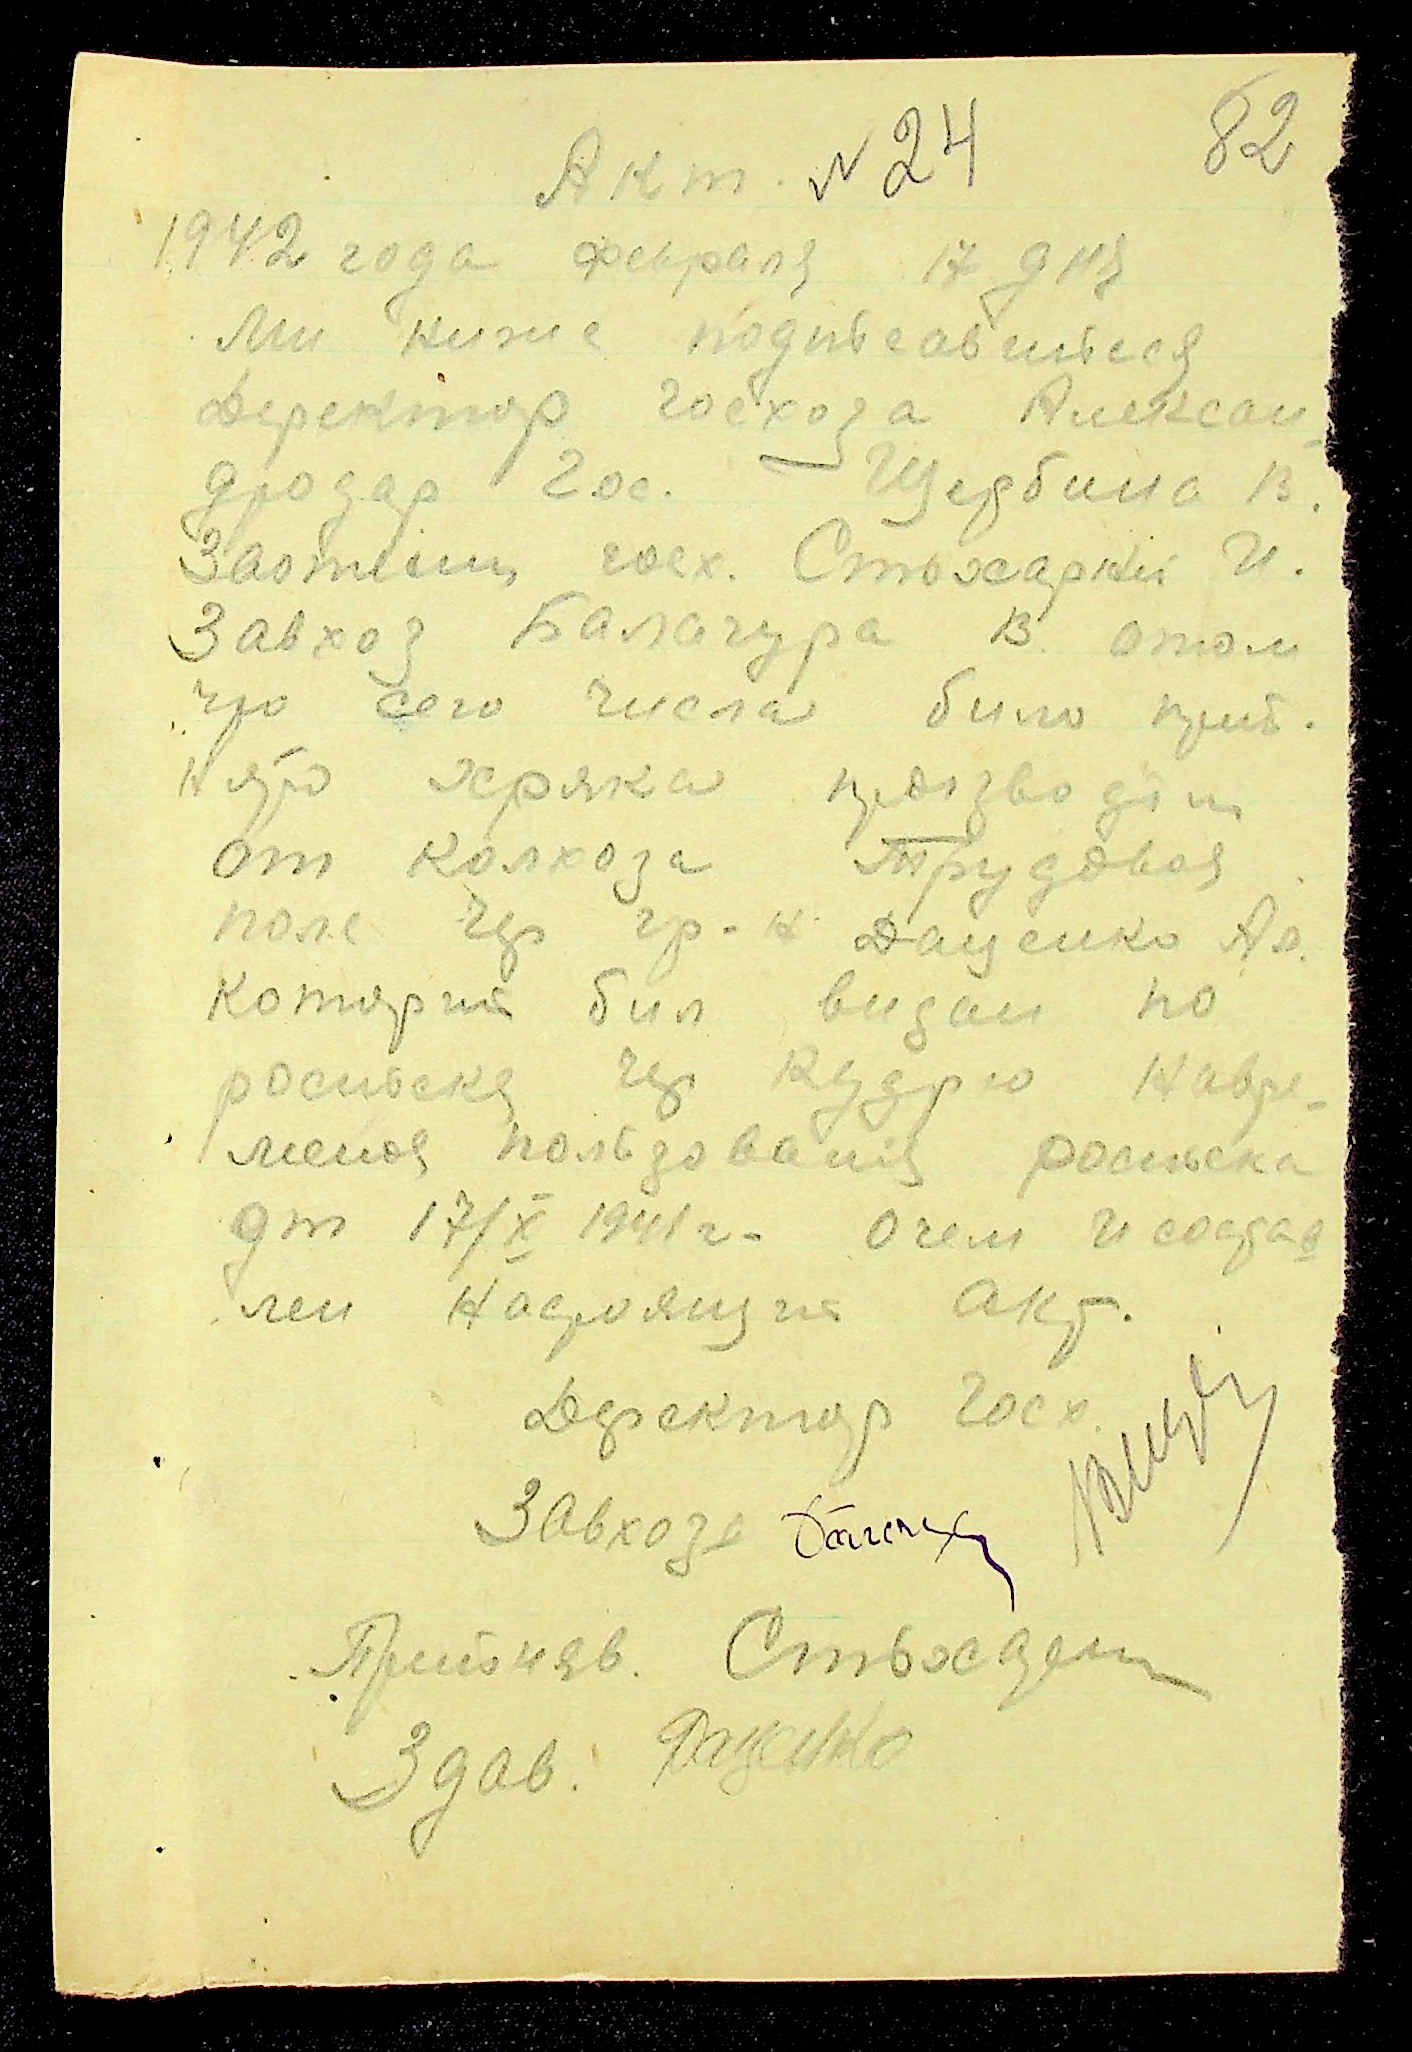 82
Акт. N 24
1942 года февраля 17 дня
Ми ниже подпісавшіеся
Деректор госхоза Алексан-
дродар Гос. Щербина В.
госх. И.
Завхоз Балагура В. отом
что сего числа било прий-
нято хряка
от колхоза Трудовоя
поле чер гр-н Даценко Ал.
которий бил видан по
роспіске чер Кудрю навре-
меноя пользованія роспіска
от 17/X 1941 г. Очем и состав
лен настоящий акт.
Деректор Госх.
Завхоза
Прийняв.
Здав. Даценко